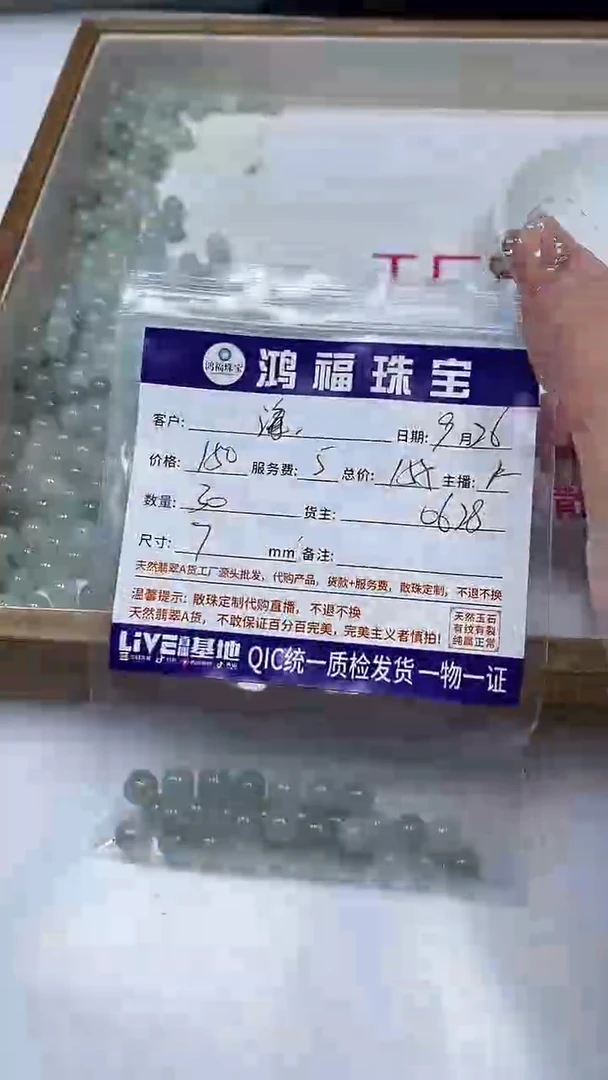 工厂
鸿福珠宝 鸿福珠宝
客户: 日期: 9月26
价格: 150 服务费: 5 总价: 155 主播:
数量: 30 货主: 0628
尺寸: 7 mm 备注:
天然翡翠A货工厂源头批发,代购产品,货款+服务费,散珠定制,不退不换
温馨提示: 散珠定制代购直播,不退不换
天然翡翠A货,不敢保证百分百完美,完美主义者慎拍!
天然玉石
有纹有裂
纯属正常
LIVE直播基地 QIC统一质检发货 一物一证